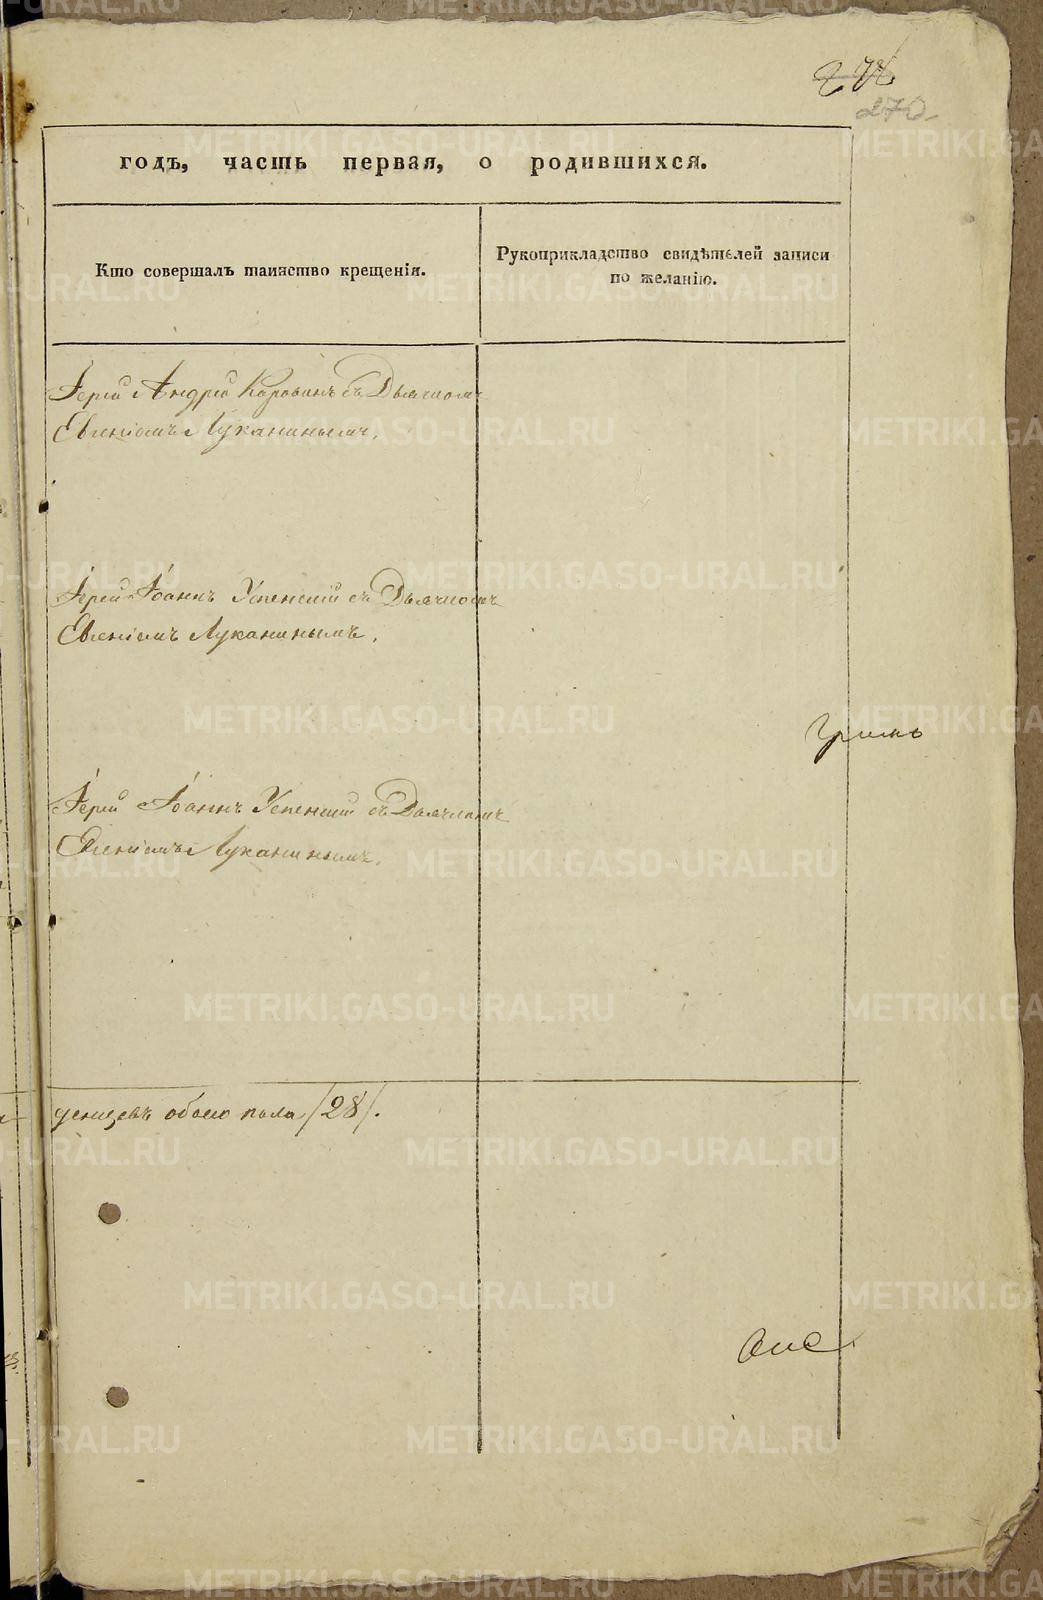 270
годъ, часть первая, о родившихся.
Кто совершалъ таинство крещенія.
Рукоприкладство свидѣтелей записи
по желанію.
Іерей Андрей Коровинъ съ Дьячкомъ
Евгеніемъ Луканинымъ.
Іерей Іоаннъ Успенскій съ Дьячкомъ
Евгеніемъ Луканинымъ.
Іерей Іоаннъ Успенскій съ Дьячкомъ
Евгеніемъ Луканинымъ.
денцевъ обоего пола /28/.
METRIKI.GASO-URAL.RU